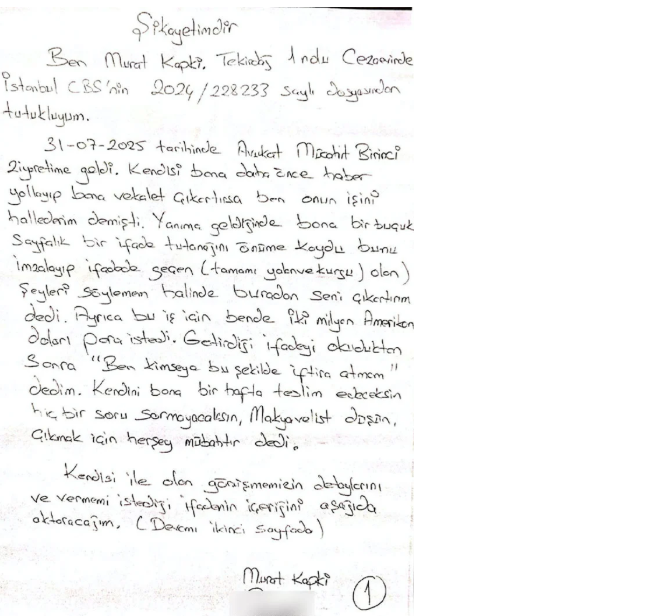 Şikayetimdir
Ben Murat Kapki. Tekirdağ 1 nolu Cezaevinde
İstanbul CBS'nin 2024/228233 sayılı dosyasından
tutukluyum.
31-07-2025 tarihinde Avukat Mücahit Birinci
Ziyaretime geldi. Kendisi bana daha önce haber
yollayıp bana vekalet çıkartırsa ben onun işini
hallederim demişti. Yanıma geldiğinde bana bir buçuk
Sayfalık bir ifade tutanağını önüme koydu bunu
imzalayıp ifadede geçen (tamamı yalan ve kurgu) olan)
Şeyleri söylemem halinde buradan seni çıkartırım
dedi. Ayrıca bu iş için benden iki milyon Amerikan
doları para istedi. Getirdiği ifadeyi okuduktan
Sonra "Ben kimseya bu şekilde iftira atmam"
dedim. Kendini bana bir hafta teslim edeceksin
hiç bir soru sormayacaksın, Makyavelist düşün,
Çıkmak için herşey mübahtır dedi.
Kendisi ile olan görüşmemizin detaylarını
ve vermemi istediği ifadenin içeriğini aşağıda
aktaracağım. (Devamı ikinci sayfada)
Murat Kapki
1